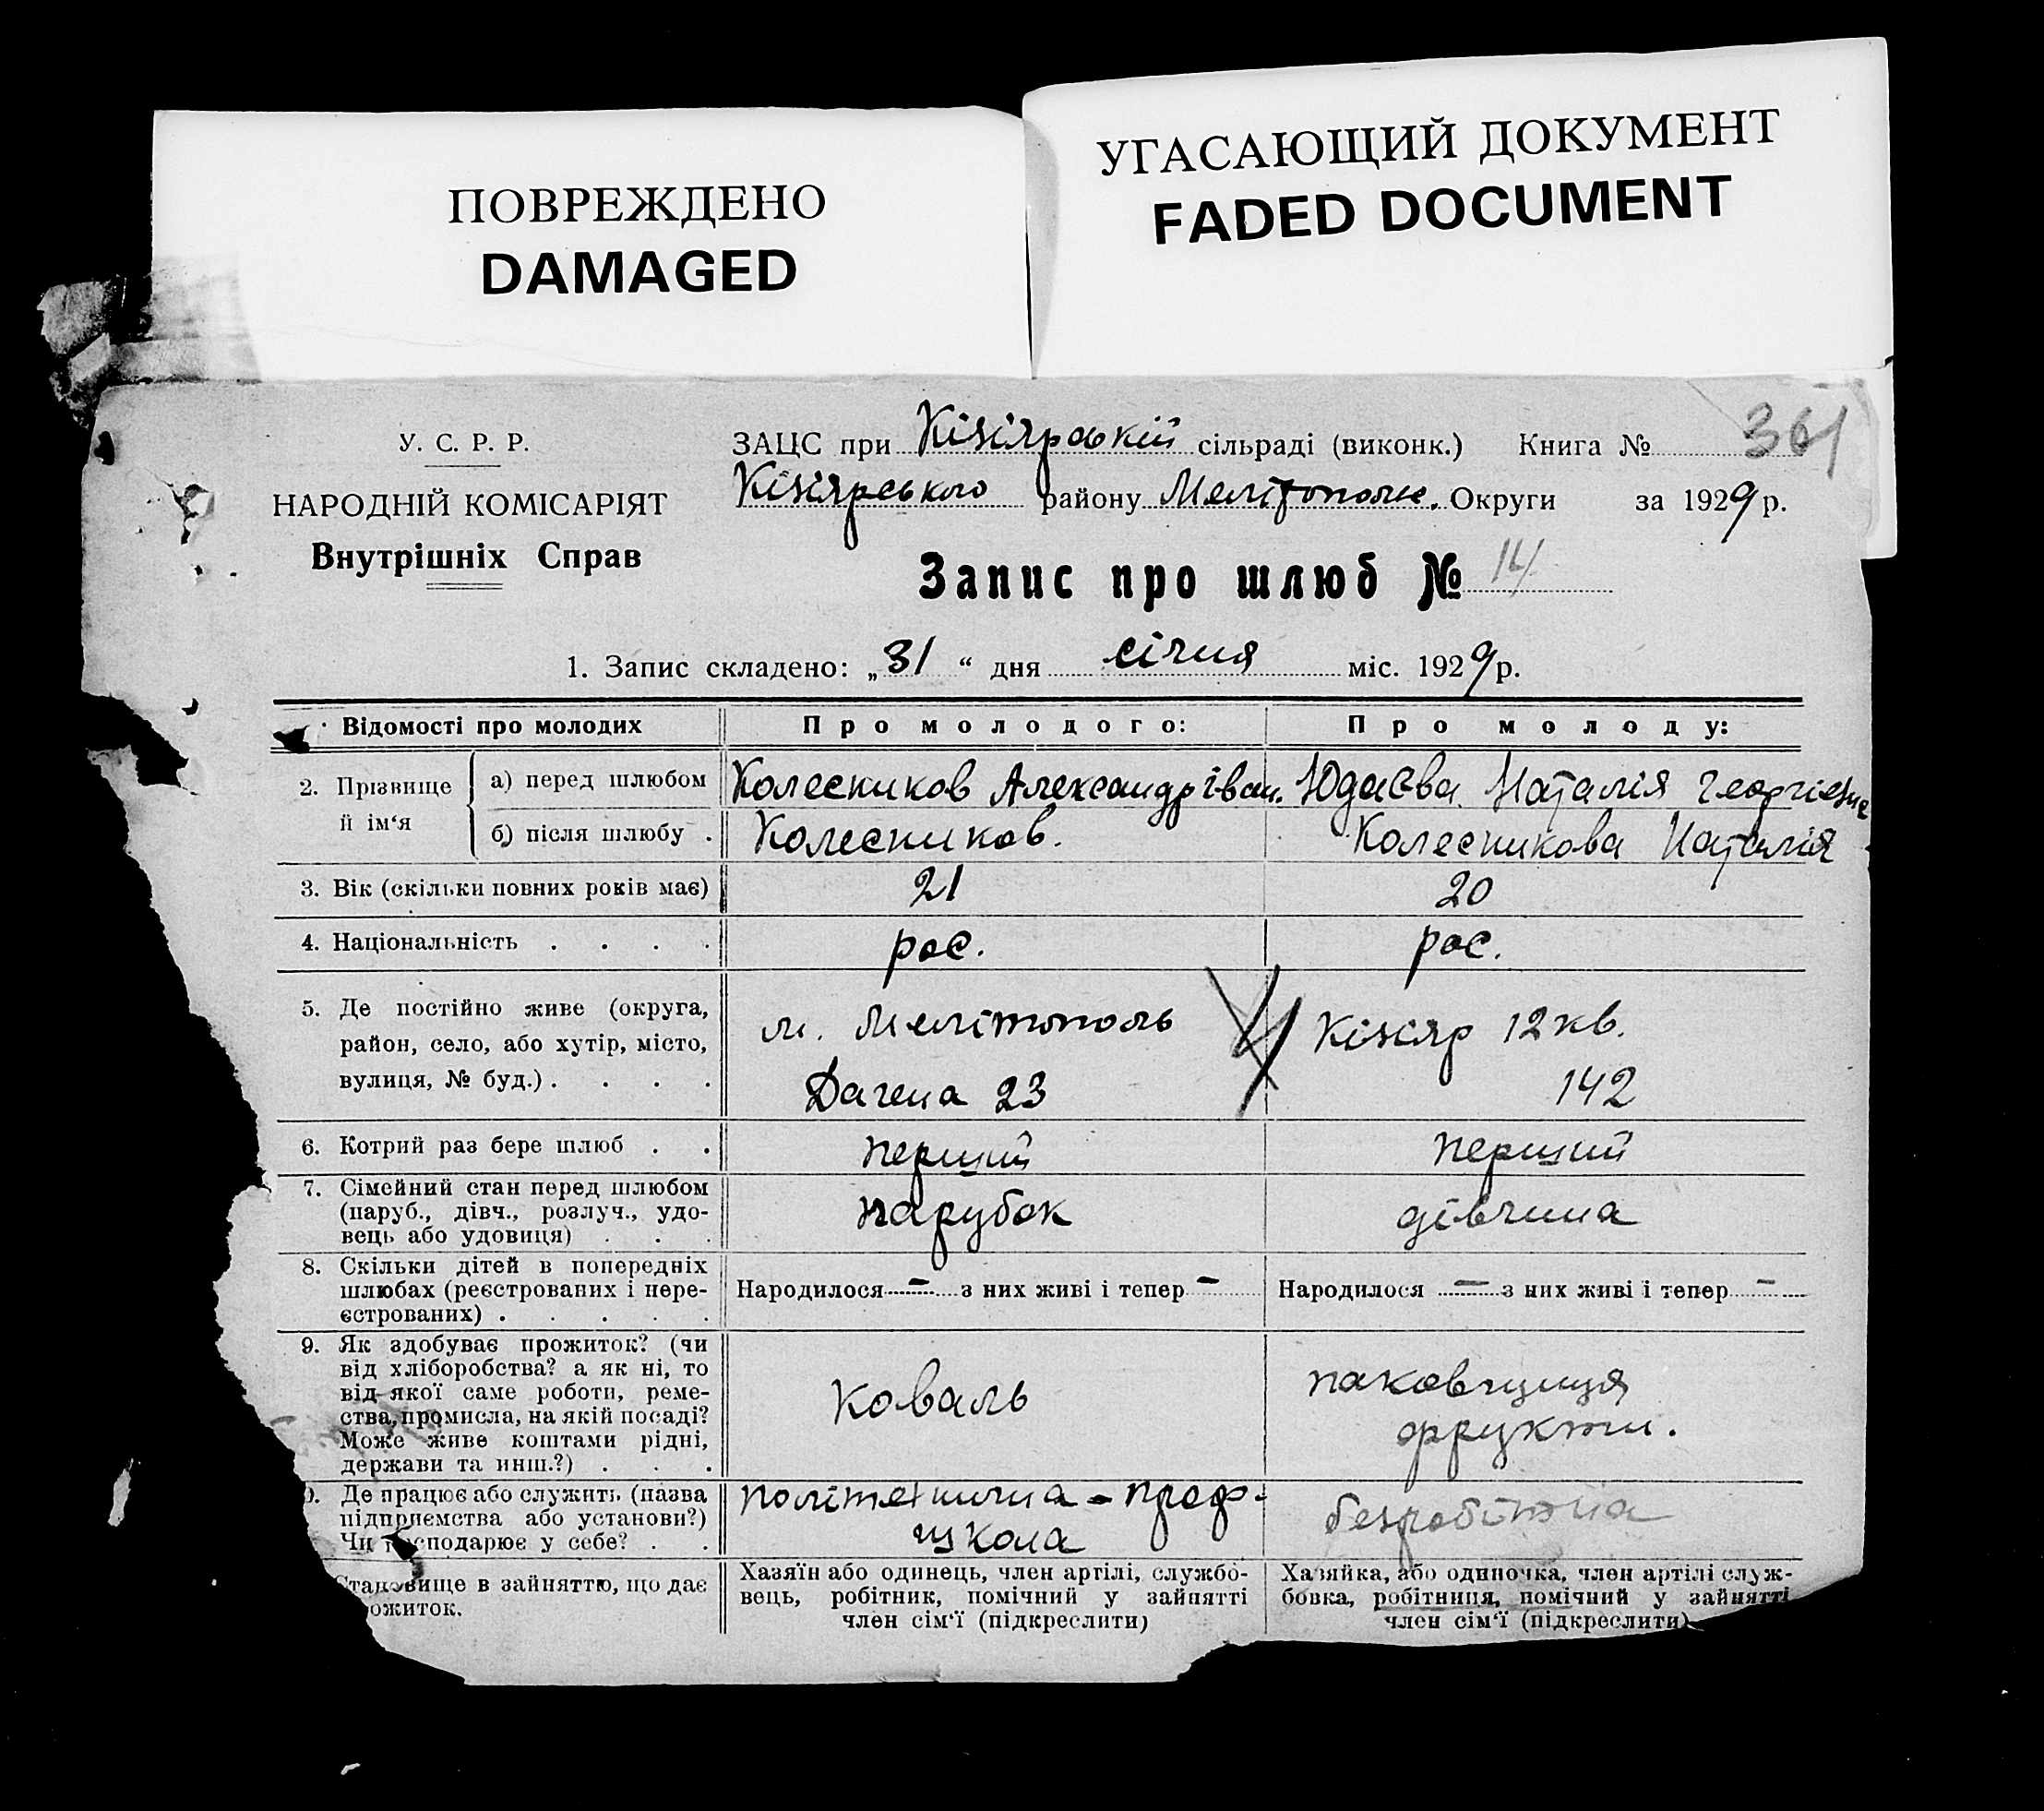 ПОВРЕЖДЕНО
DAMAGED
УГАСАЮЩИЙ ДОКУМЕНТ
FADED DOCUMENT
У. С. Р. Р.
НАРОДНІЙ КОМІСАРІЯТ
Внутрішніх Справ
ЗАЦС при Кізіярській сільраді (виконк.) Книга № 361
Кізіярського району Мелітополь. Округи за 1929 р.
Запис про шлюб № 14
1. Запис складено: „31“ дня січня міс. 1929 р.
Відомості про молодих Про молодого: Про молоду:
2. Прізвище й ім‘я
а) перед шлюбом Колесников Александр Іван. Юдаєва Наталія Георгієвна
б) після шлюбу . Колесников. Колесникова Наталія
3. Вік (скільки повних років має) 21 20
4. Національність . . . . рос. рос.
5. Де постійно живе (округа,
район, село, або хутір, місто,
вулиця, № буд.) . . . .
м. Мелітополь
Дагена 23
Кізіяр 12 кв.
142
6. Котрий раз бере шлюб . . перший перший
7. Сімейний стан перед шлюбом
(паруб., дівч., розлуч., удо-
вець або удовиця) . . .
парубок дівчина
8. Скільки дітей в попередніх
шлюбах (реєстрованих і нере-
єстрованих) . . . . .
Народилося — з них живі і тепер — Народилося — з них живі і тепер —
9. Як здобуває прожиток? (чи
від хліборобства? а як ні, то
від якої саме роботи, реме-
ства, промисла, на якій посаді?
Може живе коштами рідні,
держави та инш.?) . . .
Коваль
паковщиця
фрукти.
). Де працює або служить (назва
підприємства або установи?)
Чи господарює у себе? . .
політехнична - проф.
школа
безробітна
Становище в зайняттю, що дає
ожиток.
Хазяїн або одинець, член артілі, службо-
вець, робітник, помічний у зайнятті
член сім‘ї (підкреслити)
Хазяйка, або одиночка, член артілі служ-
бовка, робітниця, помічний у зайнятті
член сім‘ї (підкреслити)